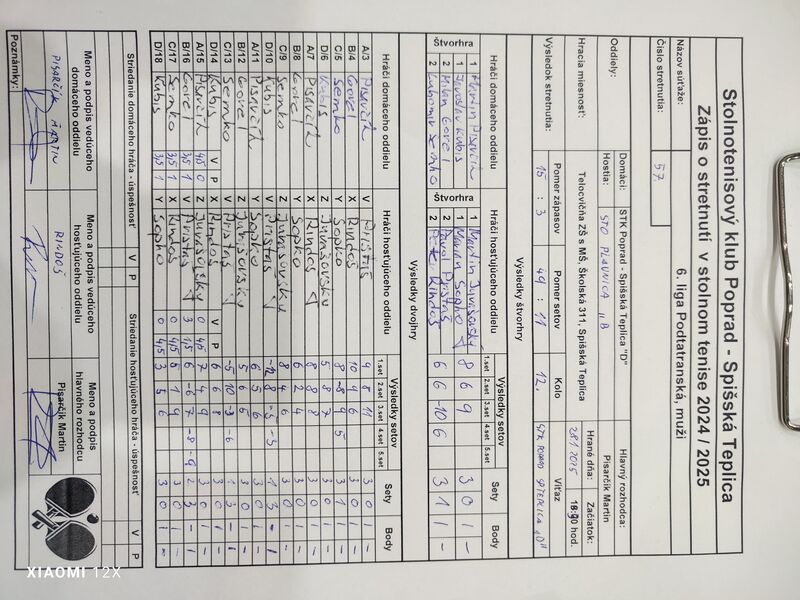 Stolnotenisový klub Poprad - Spišská Teplica
Zápis o stretnutí v stolnom tenise 2024 / 2025
Názov súťaže: 6. liga Podtatranská, muži
Číslo stretnutia: 57.
Oddiely: Domáci: STK Poprad - Spišská Teplica "D" Hlavný rozhodca:
Hostia: STO PLAVNICA "B" Pisarčík Martin
Hracia miesnosť: Telocvičňa ZŠ s MŠ, Školská 311, Spišská Teplica Hrané dňa: Začiatok:
28.1.2025 hod.
Výsledok stretnutia: Pomer zápasov Pomer setov Kolo Víťaz
15 : 3 49 : 11 12.
Výsledky štvorhry
Hráči domáceho oddielu Hráči hosťujúceho oddielu Výsledky setov Sety Body
1.set 2.set 3.set 4.set 5.set
Štvorhra 1 Martin Pisarčík Štvorhra 1 8 6 9 3 0 1 -
2 Jaroslav Kubis 2 Martin Sopko
Štvorhra 1 Milan Gorel Štvorhra 1 Pavol Pristaš 6 6 -10 6 3 1 1 -
2 Ľubomír Semko 2 Peter Rindoš
Výsledky dvojhry
Hráči domáceho oddielu Hráči hosťujúceho oddielu Výsledky setov Sety Body
1.set 2.set 3.set 4.set 5.set
A/3 Pisarčík V Pristaš 9 8 11 3 0 1 -
B/4 Gorel X Rindoš 10 9 6 3 0 1 -
C/5 Semko Y Sopko 8 -8 9 5 3 1 1 -
D/6 Kubis Z Jurašovský 5 8 7 3 0 1 -
A/7 Pisarčík X Rindoš 8 8 8 3 0 1 -
B/8 Gorel Y Sopko 6 2 4 3 0 1 -
C/9 Semko Z Jurašovský 8 4 6 3 0 1 -
D/10 Kubis V Pristaš 1 3 - 1
A/11 Pisarčík Y Sopko 6 5 6 3 0 1 -
B/12 Gorel Z Jurašovský 5 6 6 3 0 1 -
C/13 Semko V Pristaš -5 10 -3 -6 1 3 - 1
D/14 Kubis X Rindoš 6 6 8 3 0 1 -
V P V P
A/15 Pisarčík 4/5 0 Z Jurašovský 0 4/5 7 4 9 3 0 1 -
B/16 Gorel 3/5 1 V Pristaš 3 1/5 6 -6 7 -8 -9 2 3 - 1
C/17 Semko 3/5 1 X Rindoš 0 4/5 8 1 9 3 0 1 -
D/18 Kubis 3/5 1 Y Sopko 0 4/5 3 5 6 3 0 1 -
Striedanie domáceho hráča - úspešnosť V P Striedanie hosťujúceho hráča - úspešnosť V P
Meno a podpis vedúceho domáceho oddielu Meno a podpis vedúceho hosťujúceho oddielu Meno a podpis hlavného rozhodcu
PISARČÍK MARTIN RINDOŠ Pisarčík Martin
Poznámky:
XIAOMI 12X